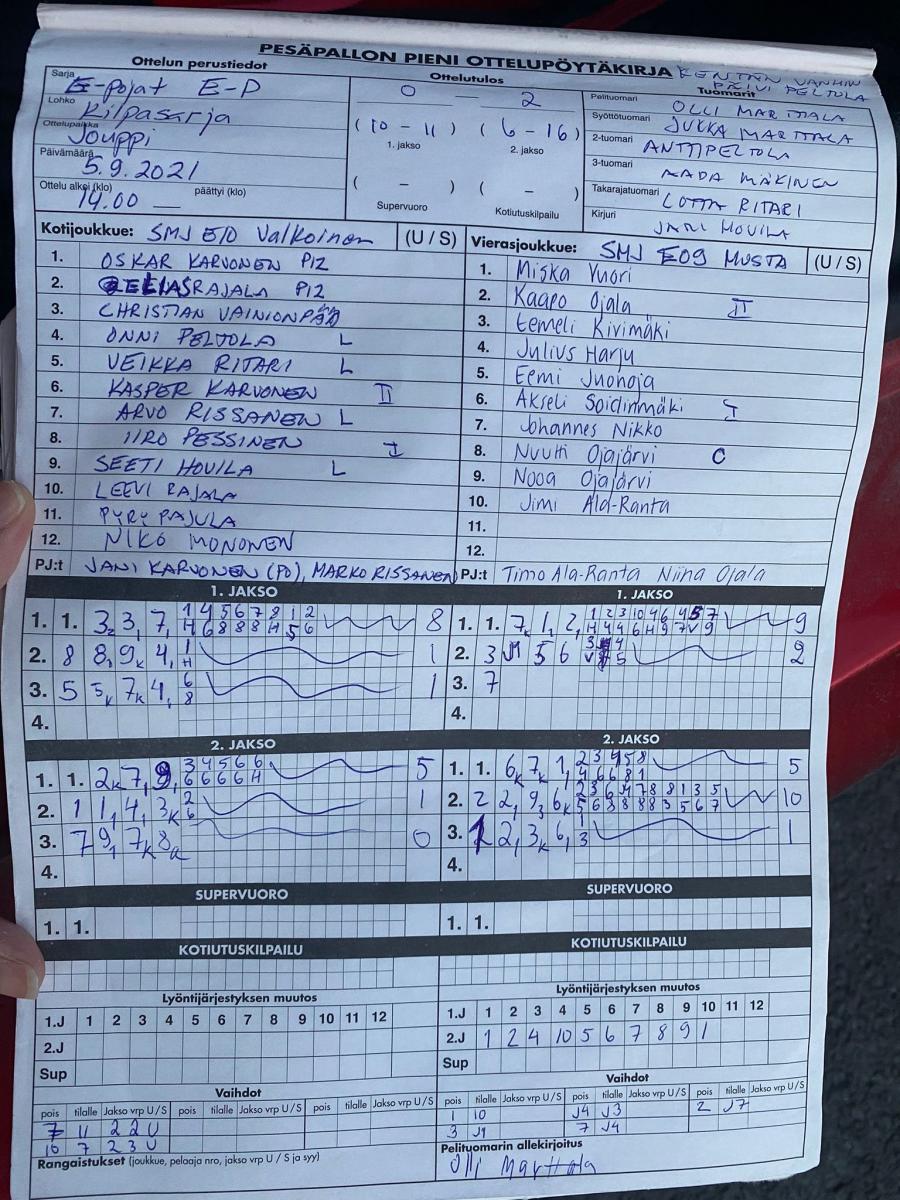 PESÄPALLON PIENI OTTELUPÖYTÄKIRJA KENTÄN VANHIN
PÄIVI PELTOLA
Ottelun perustiedot
Sarja E-pojat E-P
Lohko Kilpasarja
Ottelupaikka Jouppi
Päivämäärä 5.9.2021
Ottelu alkoi (klo) 14.00 päättyi (klo) —
Ottelutulos
0 – 2
(10 – 11) (6 – 16)
1. jakso 2. jakso
( – ) ( – )
Supervuoro Kotiutuskilpailu
Tuomarit
Pelituomari OLLI MARTTALA
Syöttötuomari JUKKA MARTTALA
2-tuomari ANTTI PELTOLA
3-tuomari AADA MÄKINEN
Takarajatuomari LOTTA RITARI
Kirjuri JANI HOUILA
Kotijoukkue: SMJ E10 Valkoinen (U / S)
1. OSKAR KARVONEN P12
2. ELIAS RAJALA P12
3. CHRISTIAN VAINIONPÄÄ
4. ONNI PELTOLA L
5. VEIKKA RITARI L
6. KASPER KARVONEN II
7. ARVO RISSANEN L
8. IIRO PESSINEN I
9. SEETI HOUILA L
10. LEEVI RAJALA
11. PYRY PAJULA
12. NIKO MONONEN
PJ:t JANI KARVONEN (PJ), MARKO RISSANEN
Vierasjoukkue: SMJ E09 MUSTA (U / S)
1. Miska Vuori
2. Kaapo Ojala II
3. Eemeli Kivimäki
4. Julius Harju
5. Eemi Juonoja
6. Akseli Soidinmäki I
7. Johannes Nikko
8. Nuutti Ojajärvi C
9. Nooa Ojajärvi
10. Jimi Ala-Ranta
11.
12.
PJ:t Timo Ala-Ranta Niina Ojala
1. JAKSO
1. 1. 3₂ 3, 7, 1 4 5 6 7 8 1 2 8
H 6 8 8 8 H 5 6
2. 8 8, 9ₖ 4, 1 1
H
3. 5 5ₖ 7ₖ 4, 6 1
8
4.
1. JAKSO
1. 1. 7ₖ 1, 2, 1 2 3 10 4 6 4 5 7 9
H 4 4 6 H 9 7 V 9
2. 3 J1 5 6 3 4 2
V 5
3. 7
4.
2. JAKSO
1. 1. 2ₖ 7, 9, 3 4 5 6 6 5
6 6 6 6 H
2. 1 1, 4, 3ₖ 2 1
6
3. 7 9, 7ₖ 8ₐ 0
4.
2. JAKSO
1. 1. 6ₖ 7ₖ 1, 2 3 4 5 8 5
4 6 6 8 1
2. 2 2, 9₃ 6ₖ 2 3 6 4 7 8 8 1 3 5 10
5 6 8 8 8 8 3 5 6 7
3. 1 2, 3ₖ 6, 1 1
3
4.
SUPERVUORO
1. 1.
SUPERVUORO
1. 1.
KOTIUTUSKILPAILU
KOTIUTUSKILPAILU
Lyöntijärjestyksen muutos
1.J 1 2 3 4 5 6 7 8 9 10 11 12
2.J
Sup
Lyöntijärjestyksen muutos
1.J 1 2 3 4 5 6 7 8 9 10 11 12
2.J 1 2 4 10 5 6 7 8 9 1
Sup
Vaihdot
pois tilalle Jakso vrp U/S pois tilalle Jakso vrp U/S pois tilalle Jakso vrp U/S
7 11 2 2 U
10 7 2 3 U
Rangaistukset (joukkue, pelaaja nro, jakso vrp U / S ja syy)
Vaihdot
pois tilalle Jakso vrp U/S pois tilalle Jakso vrp U/S pois tilalle Jakso vrp U/S
1 10 J4 J3 2 J7
3 J1 7 J4
Pelituomarin allekirjoitus
Olli Marttala